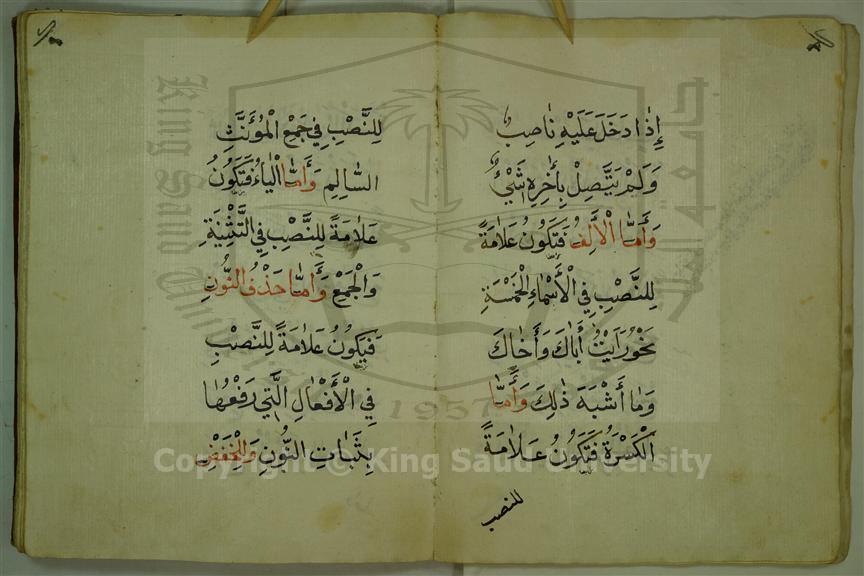 إِذَا دَخَلَ عَلَيْهِ نَاصِبٌ
وَلَمْ يَتَّصِلْ بِأٰخِرِهِ شَيْءٌ
وَأَمَّا الْأَلِفُ فَتَكُونُ عَلَامَةً
لِلنَّصْبِ فِي الْأَسْمَاءِ الْخَمْسَةِ
نَحْوُ رَأَيْتُ أَبَاكَ وَأَخَاكَ
وَمَا أَشْبَهَ ذٰلِكَ وَأَمَّا
الْكَسْرَةُ فَتَكُونُ عَلَامَةً
للنصب
لِلنَّصْبِ فِي جَمْعِ الْمُؤَنَّثِ
السَّالِمِ وَأَمَّا الْيَاءُ فَتَكُونُ
عَلَامَةً لِلنَّصْبِ فِي التَّثْنِيَةِ
وَالْجَمْعِ وَأَمَّا حَذْفُ النُّونِ
فَيَكُونُ عَلَامَةً لِلنَّصْبِ
فِي الْأَفْعَالِ الَّتِي رَفْعُهَا
بِثَبَاتِ النُّونِ وَلِلْخَفْضِ
جامعة الملك سعود
King Saud University
1957
Copyright © King Saud University